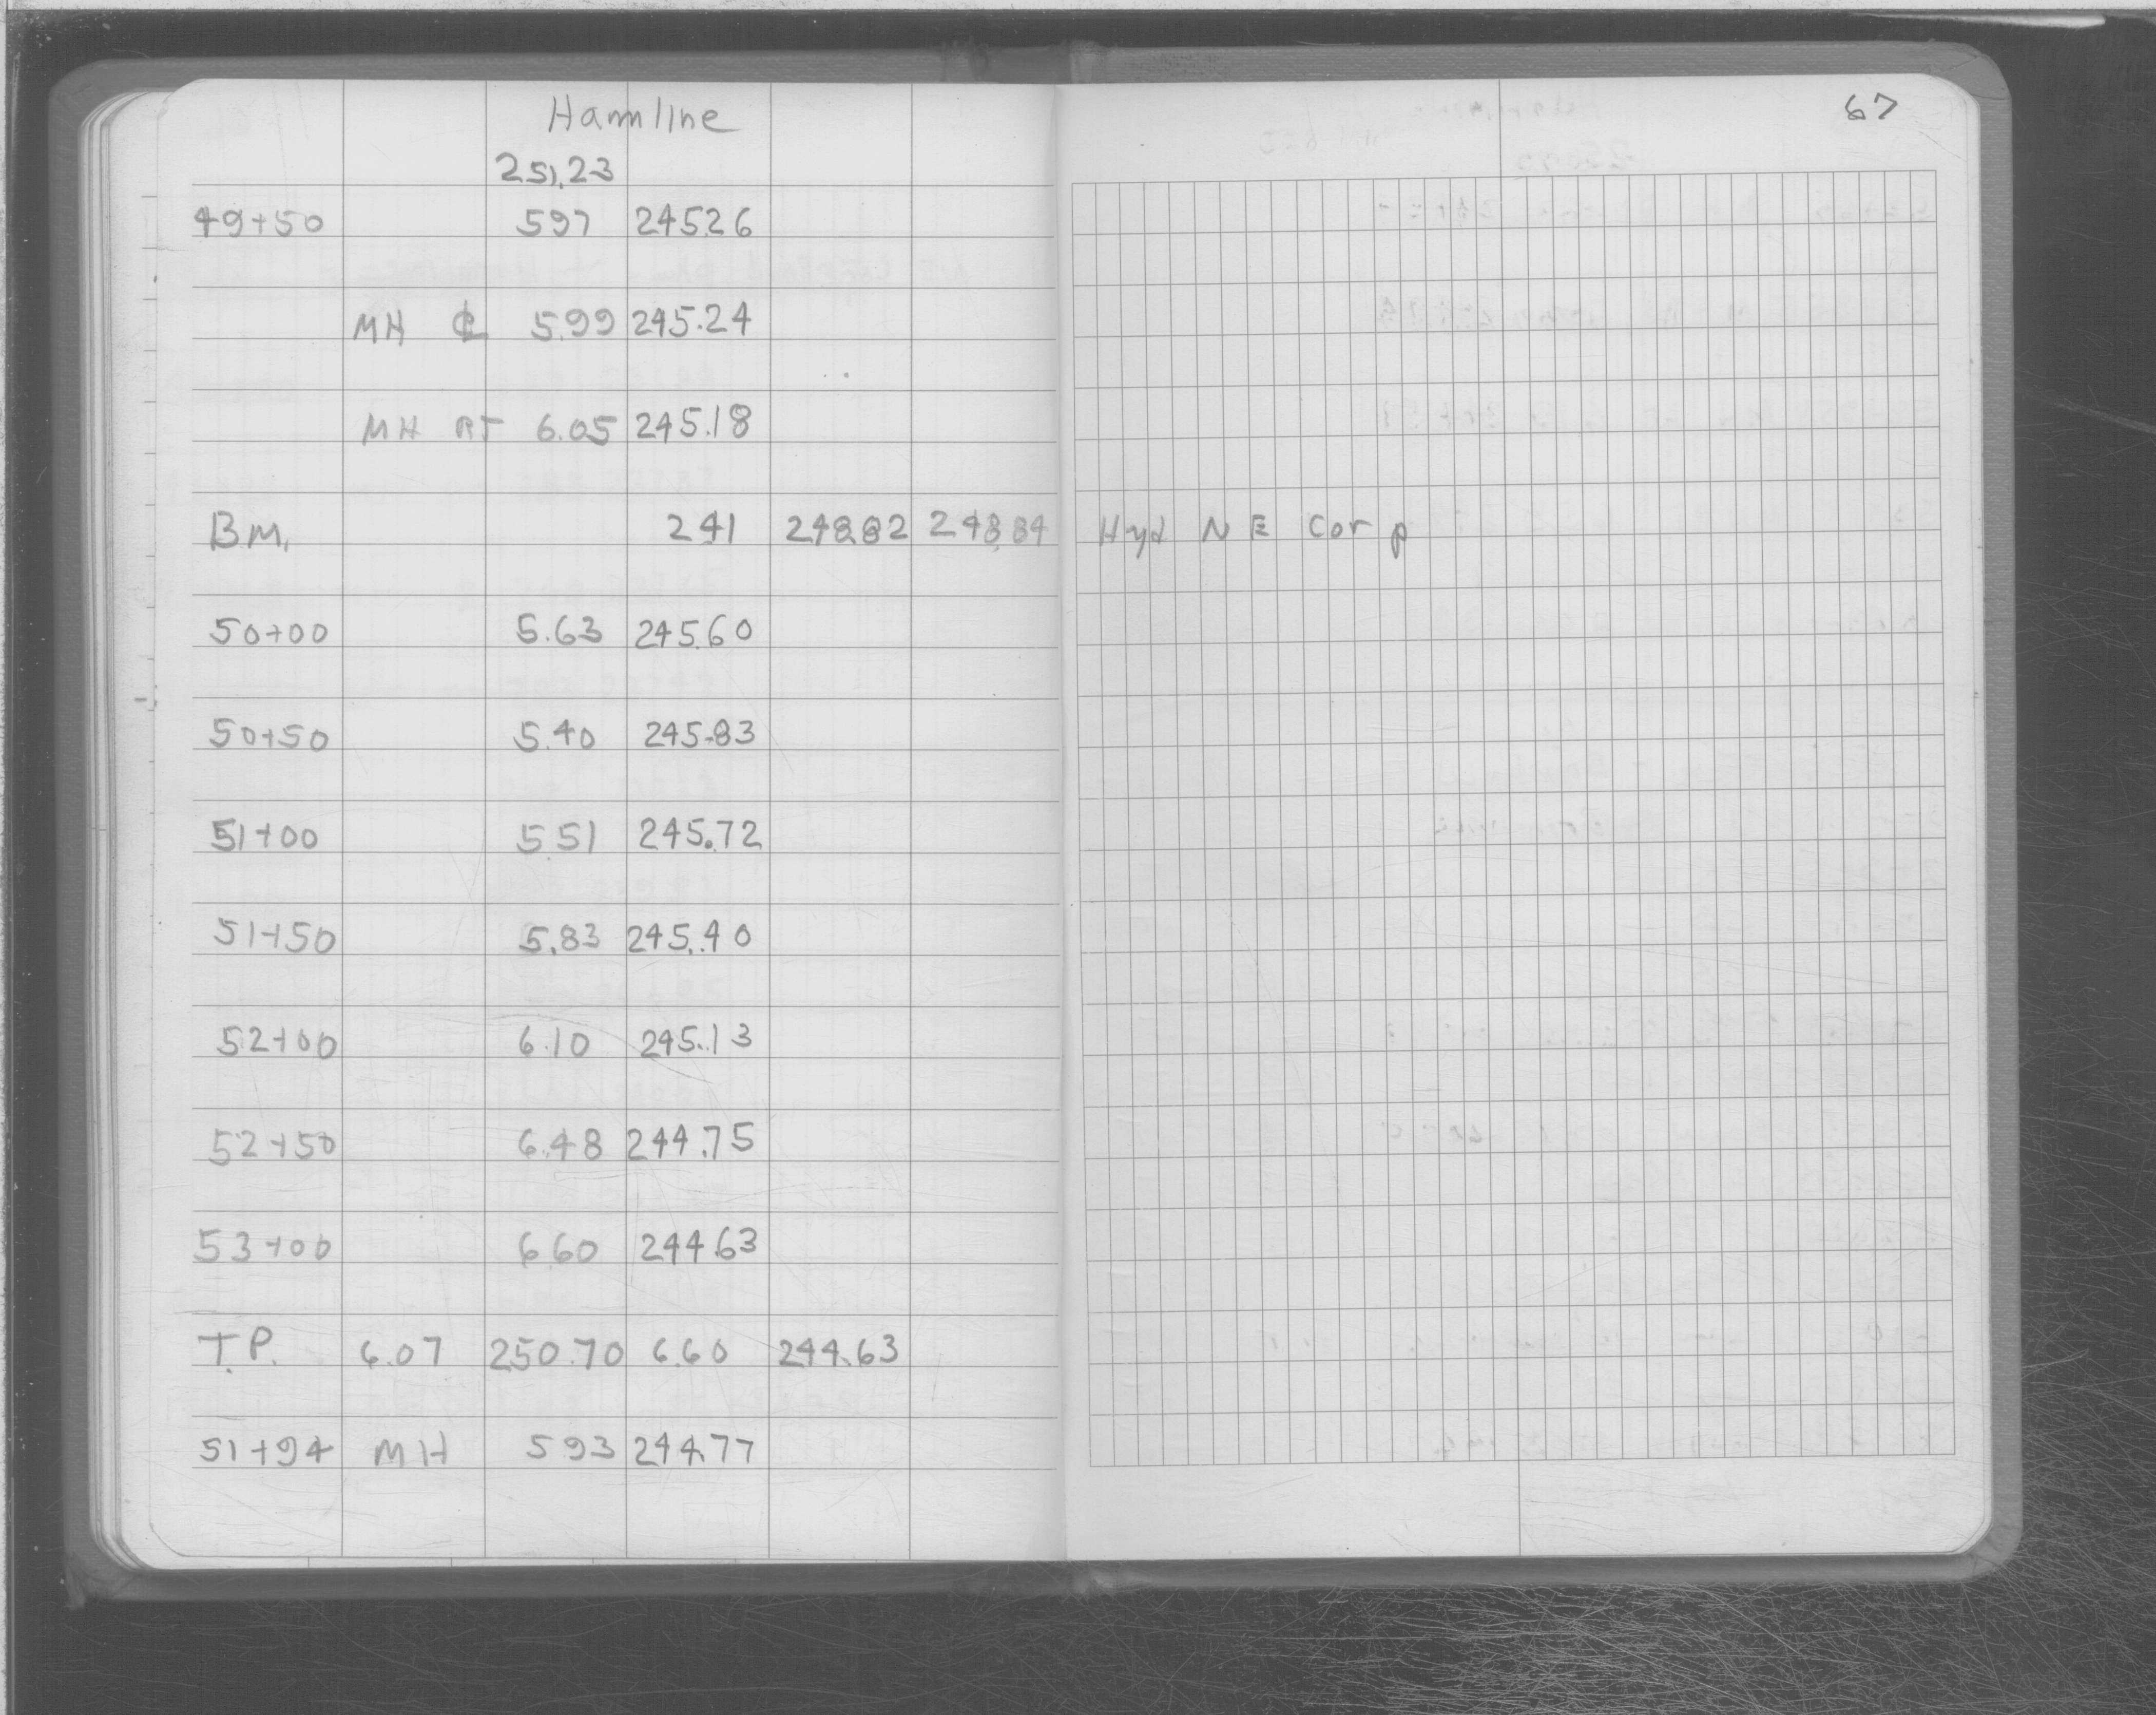 Hamline
67
251.23
49+50 597 245.26
MH ℄ 5.99 245.24
MH RT 6.05 245.18
BM. 241 248.82 248.84 Hyd NE Cor
50+00 5.63 245.60
50+50 5.40 245.83
51+00 5.51 245.72
51+50 5.83 245.40
52+00 6.10 245.13
52+50 6.48 244.75
53+00 660 244.63
T.P. 6.07 250.70 6.60 244.63
51+94 MH 593 244.77